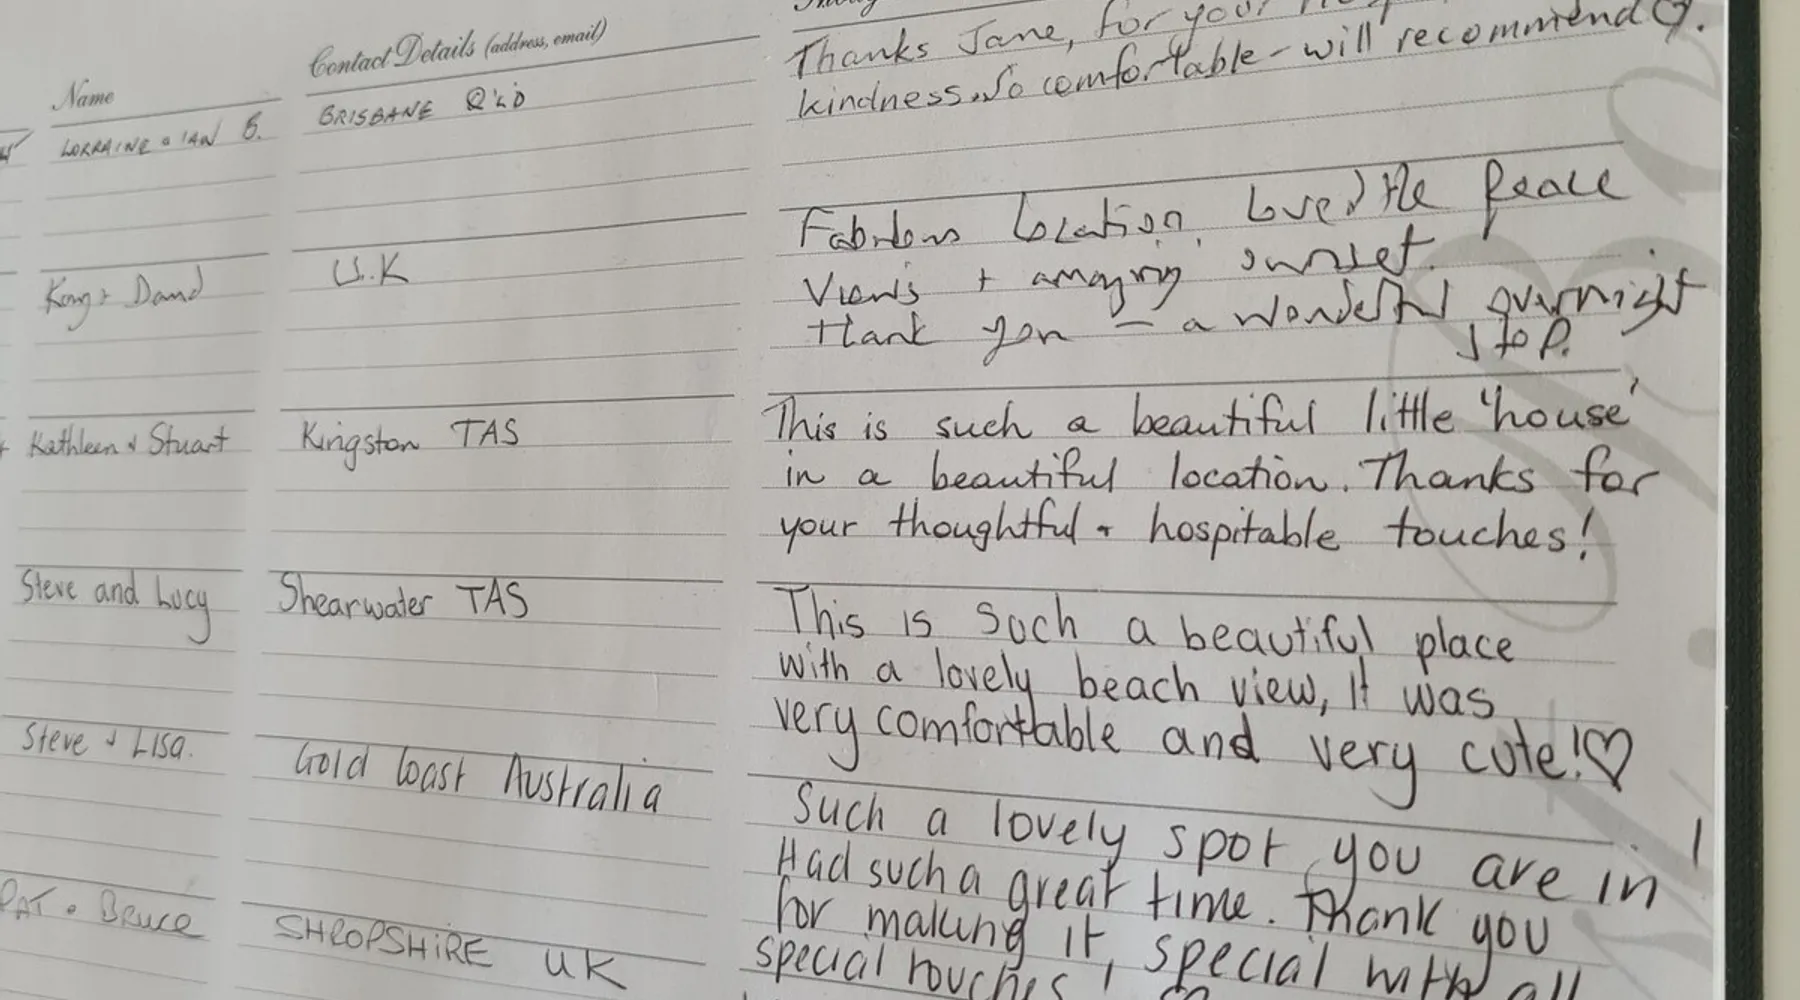 Name
Contact Details (address, email)
LORRAINE & IAN B.
BRISBANE Q'LD
Thanks Jane, for your
kindness. So comfortable - will recommend ♡.
& David
U.K
Fabulous location. Loved the peace
Views + amazing sunset.
Thank you - a wonderful overnight
stop.
Kathleen & Stuart
Kingston TAS
This is such a beautiful little 'house'
in a beautiful location. Thanks for
your thoughtful & hospitable touches!
Steve and Lucy
Shearwater TAS
This is such a beautiful place
with a lovely beach view, It was
very comfortable and very cute!♡
Steve & Lisa.
Gold Coast Australia
Such a lovely spot you are in!
Had such a great time. Thank you
for making it special with all
special touches!
PAT & Bruce
SHROPSHIRE UK